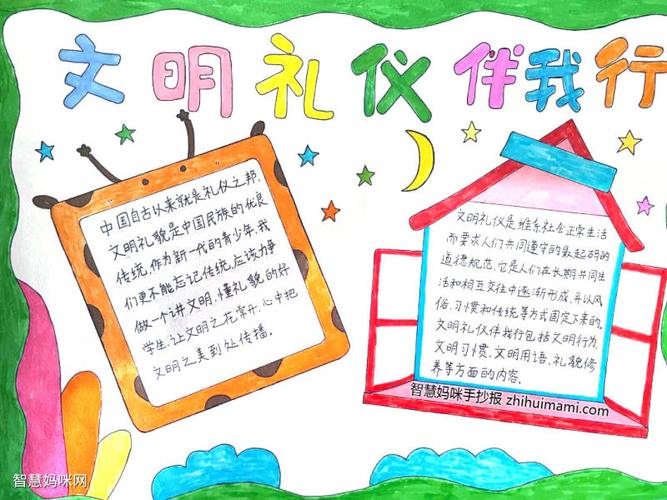 文明礼仪伴我行
中国自古以来就是礼仪之邦,
文明礼貌是中国民族的优良
传统,作为新一代的青少年,我
们更不能忘记传统,应该力争
做一个讲文明,懂礼貌的好
学生,让文明之花常开,心中把
文明之美到处传播.
文明礼仪是维系社会正常生活
而要求人们共同遵守的最起码的
道德规范,它是人们在长期共同生
活和相互交往中逐渐形成,并以风
俗、习惯和传统等方式固定下来的,
文明礼仪伴我行包括文明行为
文明习惯、文明用语、礼貌修
养等方面的内容.
智慧妈咪手抄报 zhihuimami.com
智慧妈咪网